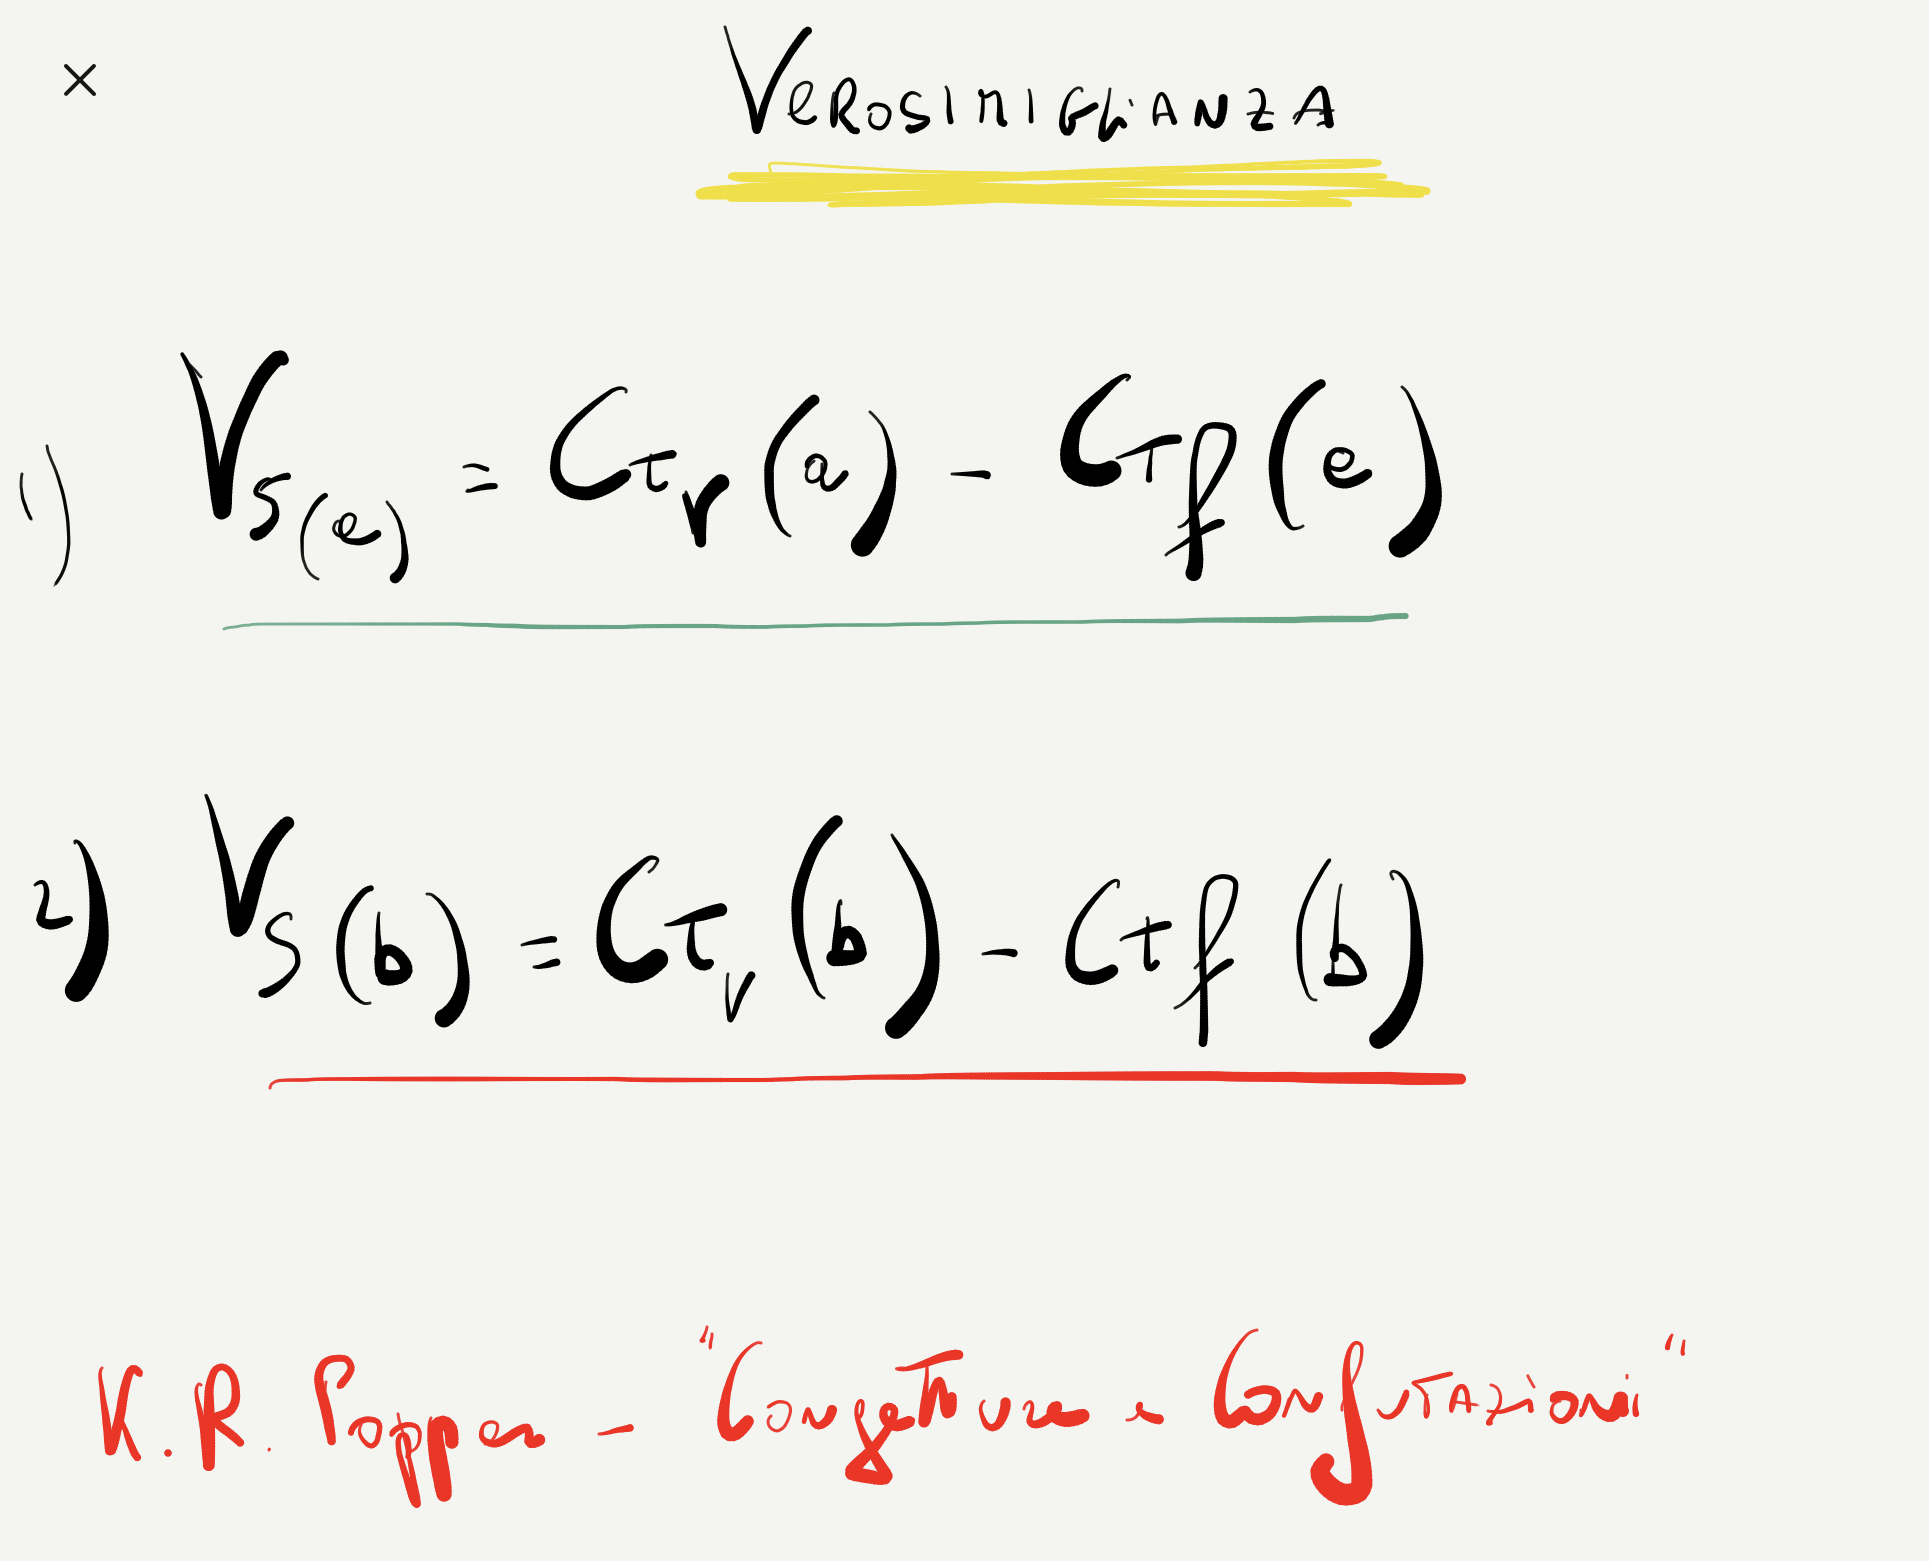 Verosimiglianza
1) Vs(a) = Ctv(a) - Ctf(a)
2) Vs(b) = Ctv(b) - Ctf(b)
K.R. Popper - "Congetture e Confutazioni"